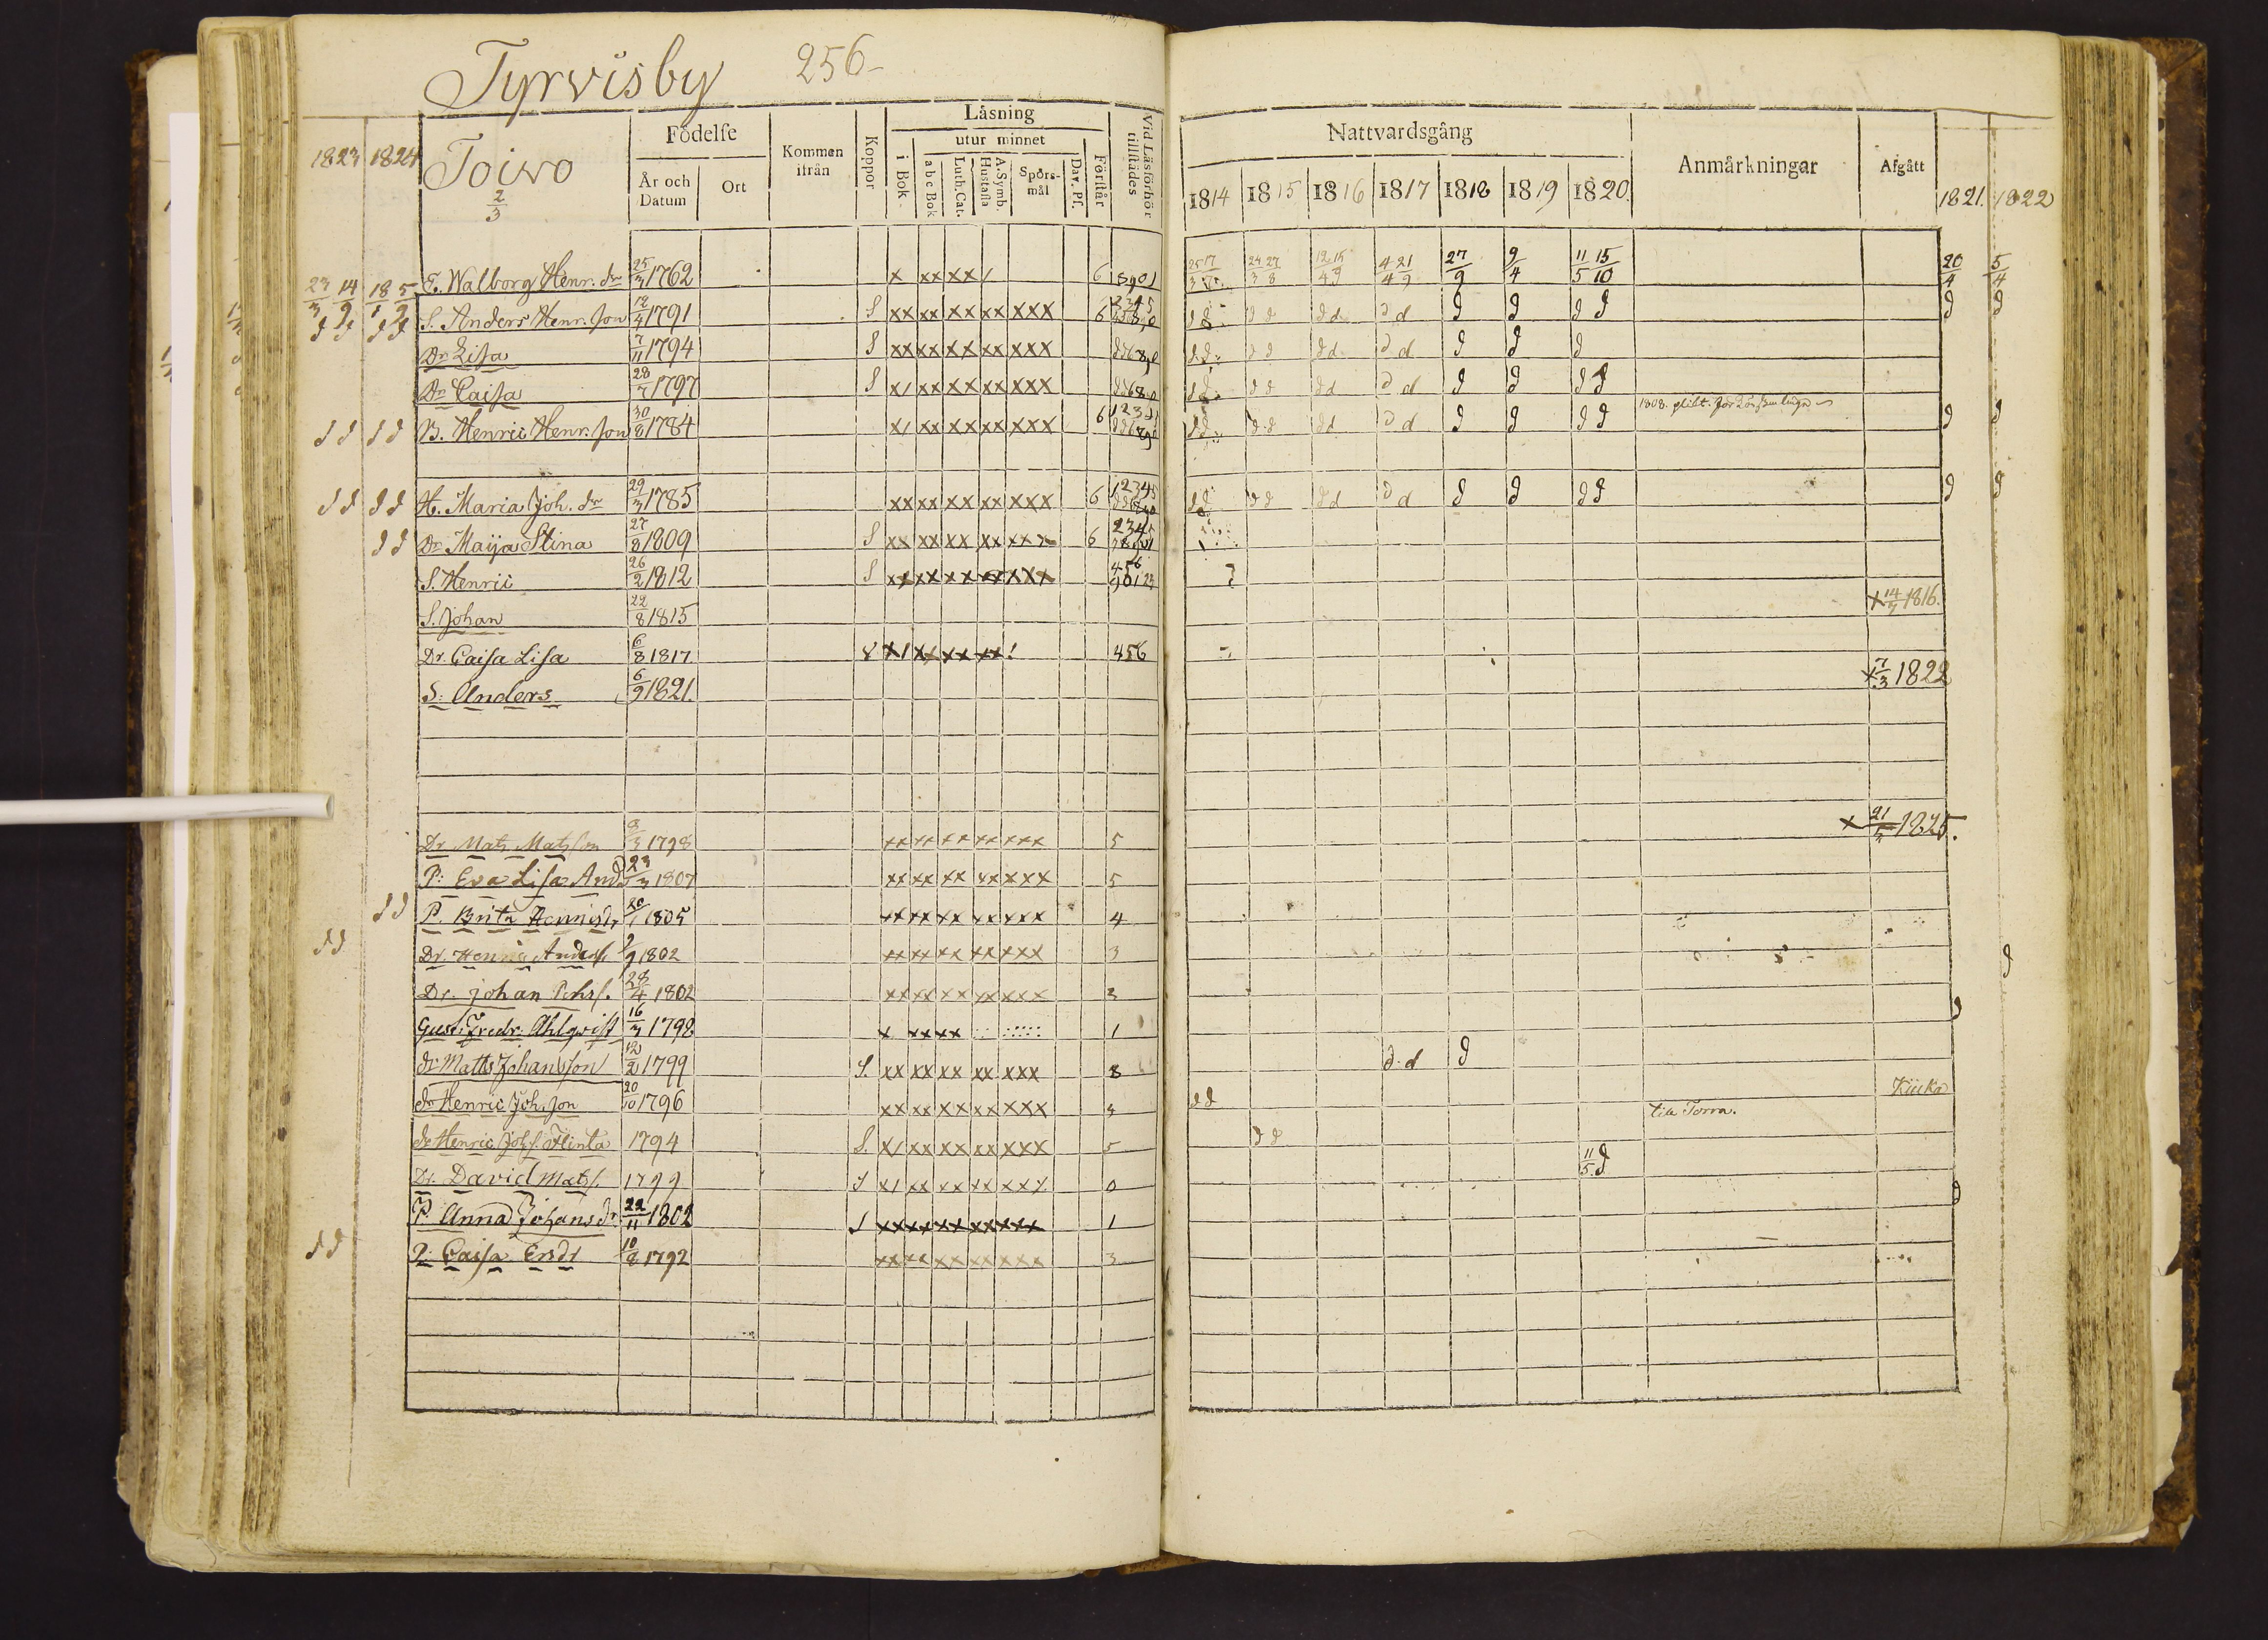 Tyrvisby 256-
1823 1824
Toivo
2/3
Födelse
År och Datum
Ort
Kommen ifrån
Koppor
Läsning
i Bok.
utur minnet
abc Bok
Luth. Cat.
A. Symb. Hustafla
Spörs-mål
Dav. Ps.
Förstår
Vid Läsförhör tillstädes
Nattvardsgång
1814 1815 1816 1817 1818 1819 1820.
Anmärkningar
Afgått
1821. 1822
23/3 14/9 18/1 5/9 E. Walborg Henr. dr 25/3 1762 x xx xx / 6 8901 24 27/3 8 12 15/4 9 4 21/4 9 27/9 9/4 11 15/5 10 20/4 5/4
d d d d S. Anders Henr. Son 12/4 1791 S xx xx xx xx xxx 6 d d d d d d d d d d d d
Dr Lisa 7/11 1794 S xx xx xx xx xxx d d d d d d d d d
Dr Caisa 28/7 1797 S x/ xx xx xx xxx d d d d d d d d d d
d d d d B. Henric Henr. Son 30/8 1784 x/ xx xx xx xxx 6 d d d d d d d d d d 1808. d d
d d d d H. Maria Joh. dr 29/3 1785 xx xx xx xx xxx 6 12345 d d d d d d d d d d d d
d d Dr Maija Stina 27/8 1809 S xx xx xx xx xxx 6 2345
S. Henric 26/2 1812 S xx xx xx xx xxx 456 90123
S. Johan 22/8 1815 x 14/7 1816.
Dr. Caisa Lisa 6/8 1817 8 x/ xx xx xx ! 456
S: Anders 6/9 1821. x 7/3 1822
Dr Mats Matsson 3/3 1798 xx xx xx xx xxx 5 x 21/5 1825.
P: Eva Lisa And 23/3 1807 xx xx xx xx xxx 5
d d P. Brita Henrisdr 20/1 1805 xx xx xx xx xxx 4
d d Dr. Henric Anders. 9/9 1802 xx xx xx xx xxx 3
Dr. Johan Johs. 28/4 1802 xx xx xx xx xxx 2 d
Gust: Fredr: Ahlqvist 16/3 1798 x xx xx 1 d
dr Matts Johansson 12/2 1799 S. xx xx xx xx xxx 8 d. d d
dr Henric Joh. Son 20/10 1796 xx xx xx xx xxx 4 d d till Torra. Kiicko
dr Henric Johs. Hinta 1794 S. x/ xx xx xx xxx 5 d d
Dr. David Mats. 1799 S x/ xx xx xx xxx 0 11/5. d
P. Anna Johans dr 22/11 1802 S xx xx xx xx xxx 1 d
d d P. Caisa Ersdr 10/8 1792 xx xx xx xx xxx 3